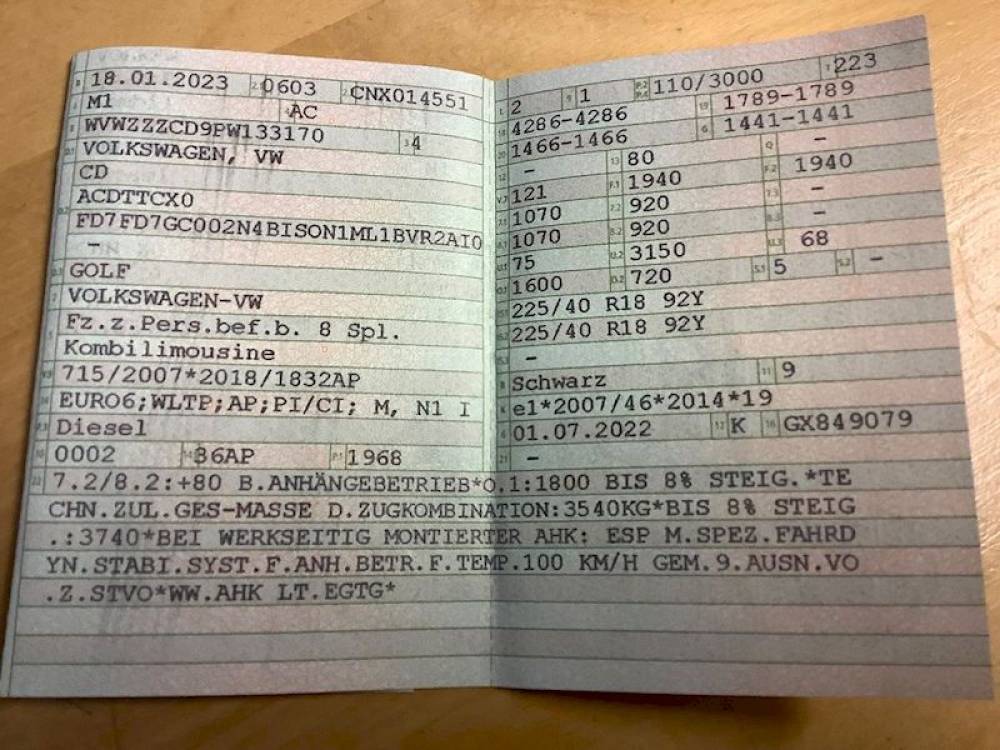 18.01.2023 0603 CNX014551
M1 AC
WVWZZZCD9PW133170 4
VOLKSWAGEN, VW
CD
ACDTTCX0
FD7FD7GC002N4BISON1ML1BVR2AI0
–
GOLF
VOLKSWAGEN-VW
Fz.z.Pers.bef.b. 8 Spl.
Kombilimousine
715/2007*2018/1832AP
EURO6;WLTP;AP;PI/CI; M, N1 I
Diesel
0002 36AP 1968
2 1 110/3000 223
4286-4286 1789-1789
1466-1466 1441-1441
– 80 –
121 1940 1940
1070 920 –
1070 920 –
75 3150 68
1600 720 5 –
225/40 R18 92Y
225/40 R18 92Y
–
Schwarz 9
e1*2007/46*2014*19
01.07.2022 K GX849079
–
7.2/8.2:+80 B.ANHÄNGEBETRIEB*O.1:1800 BIS 8% STEIG.*TE
CHN.ZUL.GES-MASSE D.ZUGKOMBINATION:3540KG*BIS 8% STEIG
.:3740*BEI WERKSEITIG MONTIERTER AHK: ESP M.SPEZ.FAHRD
YN.STABI.SYST.F.ANH.BETR.F.TEMP.100 KM/H GEM.9.AUSN.VO
.Z.STVO*WW.AHK LT.EGTG*